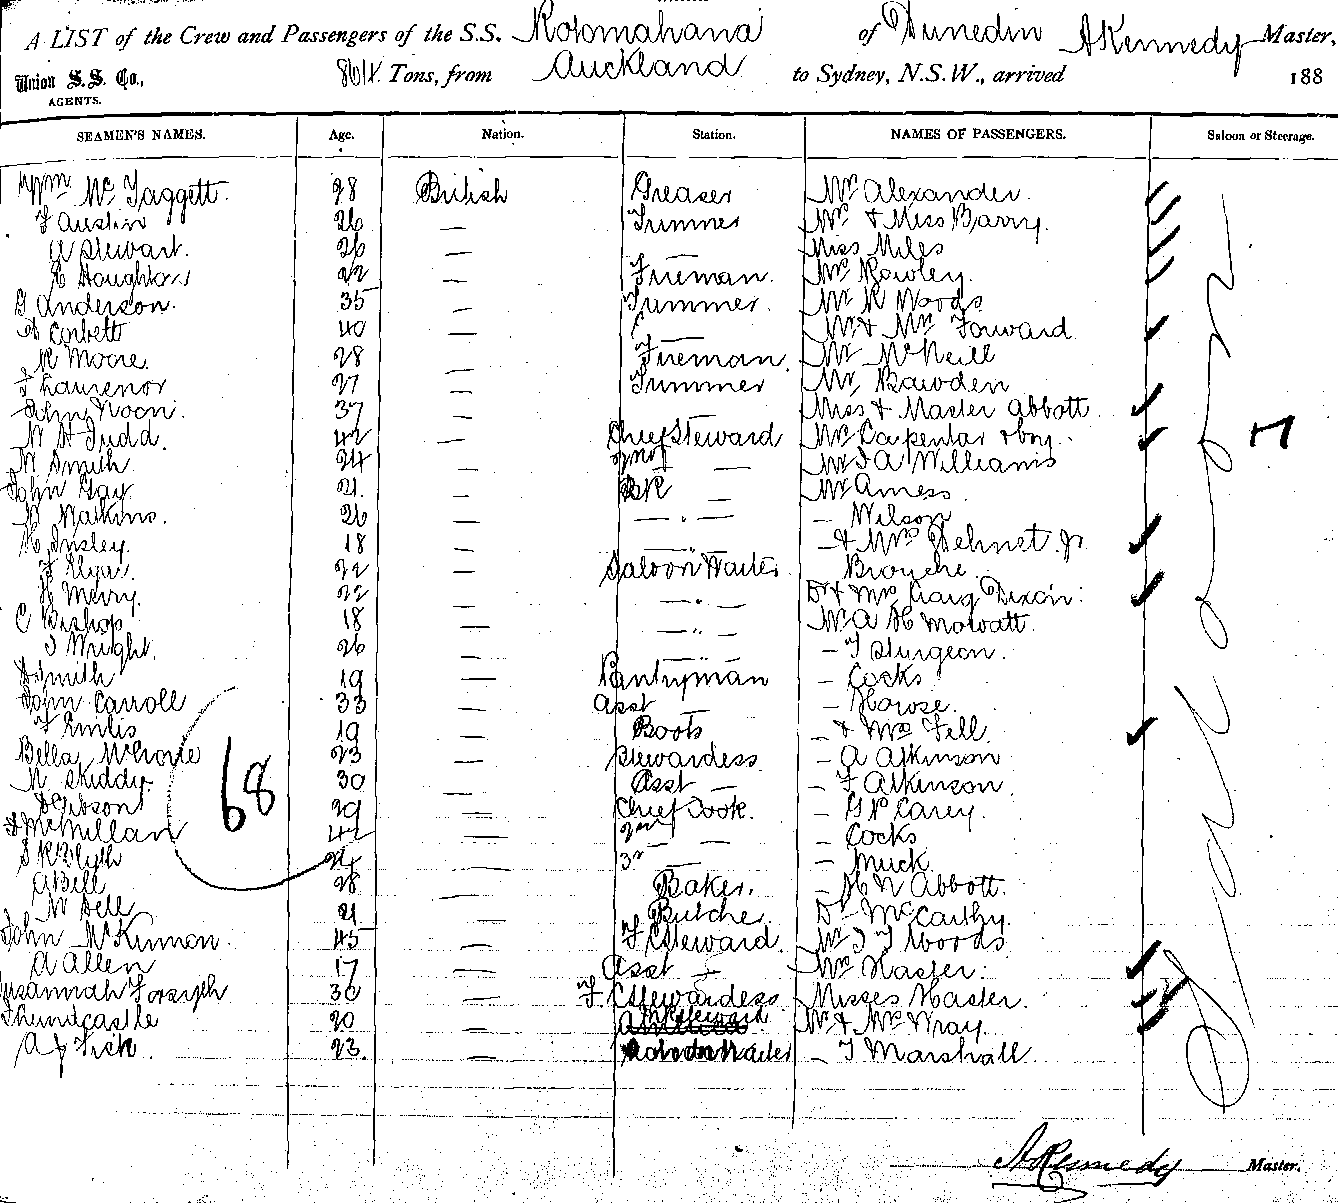 A LIST of the Crew and Passengers of the S.S. Rotomahana of Dunedin A Kennedy Master,
Union S. S. Co., 864 Tons, from Auckland to Sydney, N.S.W., arrived 188
AGENTS.
SEAMEN'S NAMES. Age. Nation. Station. NAMES OF PASSENGERS. Saloon or Steerage.
Wm Mc Taggett. 28 British Greaser Mr Alexander
F Austin 26 — Trimmer Mrs & Miss Barry.
A Stewart. 26 — — Miss Miles
E Houghton 22 — Fireman. Mrs Rowley.
G Anderson. 35 — Trimmer Mr R Woods
A Corbett 40 — Mr & Mrs Forward
R Moore. 28 — Fireman. Mr McNeill
27 — Trimmer Mr Bawden
John Noon. 37 — — Miss & Master Abbott.
W H Judd. 42 — Chief Steward Mrs Carpentar & boy.
W Smith. 24 — 2nd — Mr J A Williams
John Gay 21. — BK — Mr Amess.
W Watkins. 26 — — " — — Wilson
H Insley. 18 — — " — — & Mrs Dehnet Jr
F Elgar. 22 — Saloon Waiter Brouche.
H Merry. 22 — — " — Dr & Mrs Craig Dixon:
C Bishop 18 — — " — Mr A H Mowatt.
J Wright. 26 — — " — — F Sturgeon.
Smith 19 — Pantryman — Cocks
John Carroll 33 — Asst — — Howse.
F Emilis 19 — Boots — & Mrs Fell.
Bella McHorie 23 — Stewardess — A Atkinson
N Skiddy. 30 — Asst — — F Atkinson.
Gibson 29 — Chief Cook. — G N Carey.
McMillan 42 — 2nd — — Cocks
S R Blyth 24 — 3rd — — Muck
A Bell 28 — Baker. — H N Abbott.
W Dell 21 — Butcher. Dr — McCarthy.
John McKinnon. 45 — F C Steward. Mr J J Woods
A Allen 17 — Asst — Mrs Hasler:
Susannah Forsyth 30 — F C Stewardess Misses Hasler.
Thundcastle 20 — Steward Mr & Mrs Wray.
A J Fish. 23. — Saloon Waiter — J Marshall.
68
7
Saloon
A Kennedy Master.